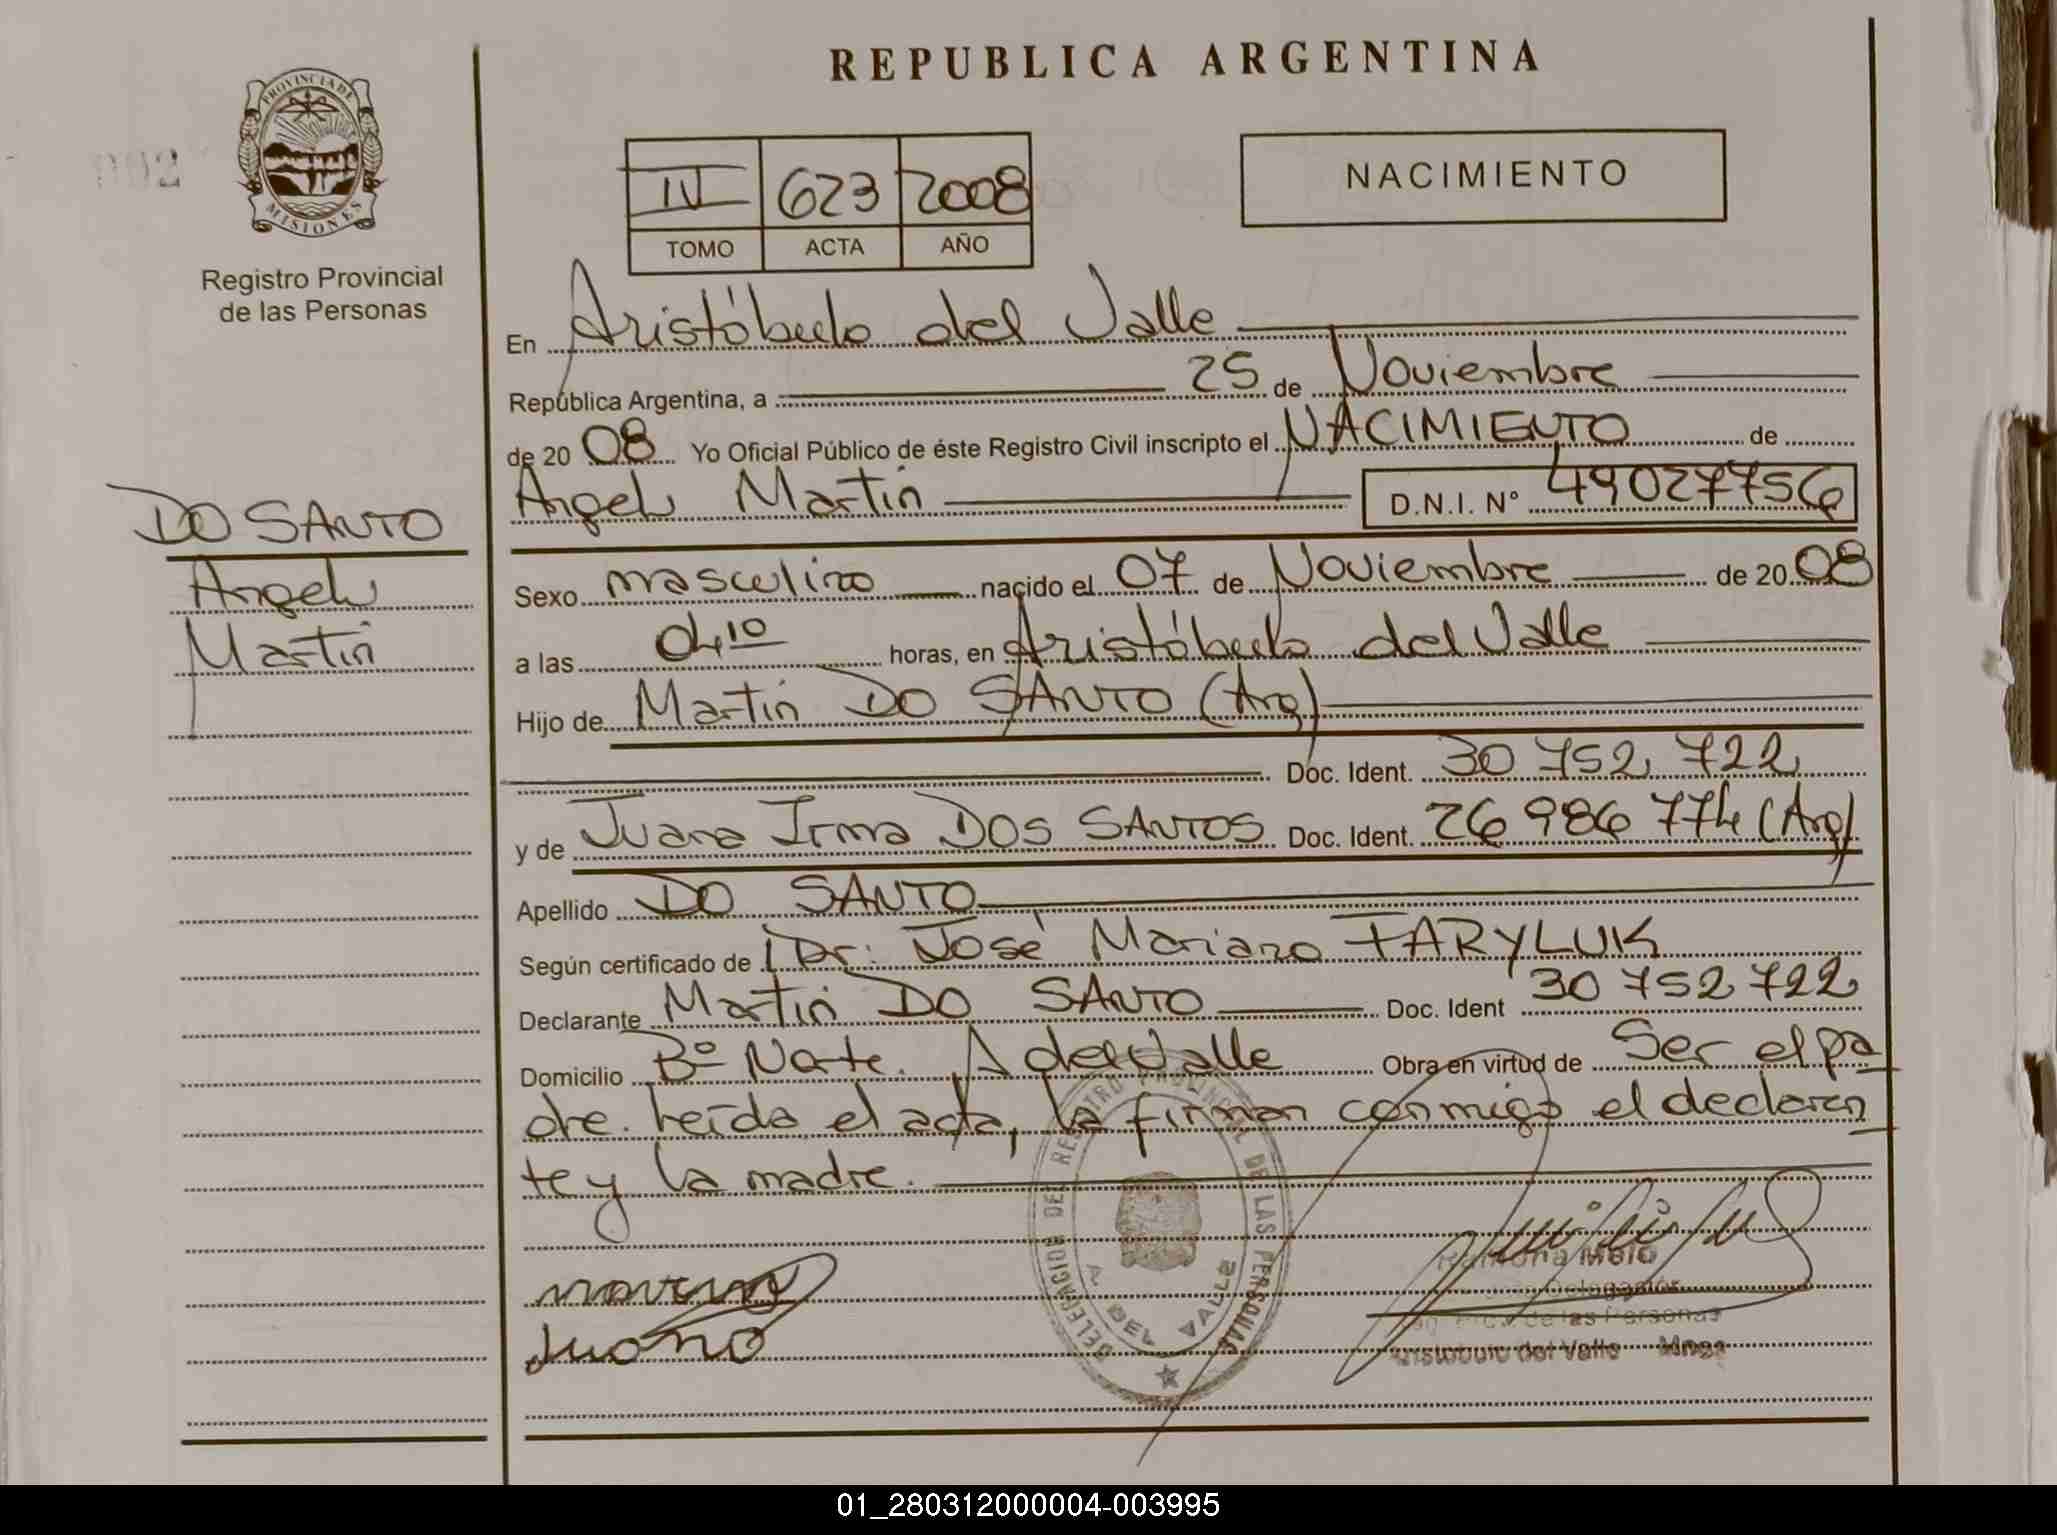 REPUBLICA ARGENTINA
PROVINCIA DE
MISIONES
Registro Provincial
de las Personas
IV 623 2008
TOMO ACTA AÑO
NACIMIENTO
DO SANTO
Angel
Martin
En Aristóbulo del Valle
República Argentina, a 25 de Noviembre
de 20 08 Yo Oficial Público de éste Registro Civil inscripto el NACIMIENTO de
Angel Martín D.N.I. N° 49027756
Sexo masculino nacido el 07 de Noviembre de 20 08
a las 04 10 horas, en Aristóbulo del Valle
Hijo de Martín DO SANTO (Arg)
Doc. Ident. 30 752 722
y de Juana Irma DOS SANTOS Doc. Ident. 26 986 774 (Arg)
Apellido DO SANTO
Según certificado de Dr. José Mariano TARYLUK
Declarante Martin DO SANTO Doc. Ident 30 752 722
Domicilio B° Norte. A del Valle Obra en virtud de Ser el pa
dre. Leída el acta, la firman conmigo el declaran
te y la madre.
DELEGACION DEL REGISTRO PROVINCIAL DE LAS PERSONAS
A. DEL VALLE
Juana
Ramona Melo
Delegación
de las Personas
Aristobulo del Valle Mnes
01_280312000004-003995